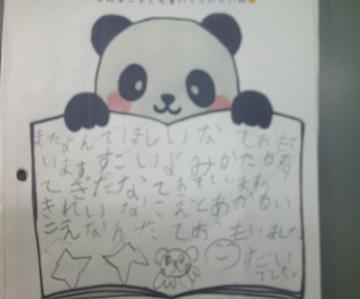 またよんでほしいなておもて
います すごいよみかたかす
てきだなておもていますね
きれいなこえとあかるい
こえなんだておもいました
すごい
でした。